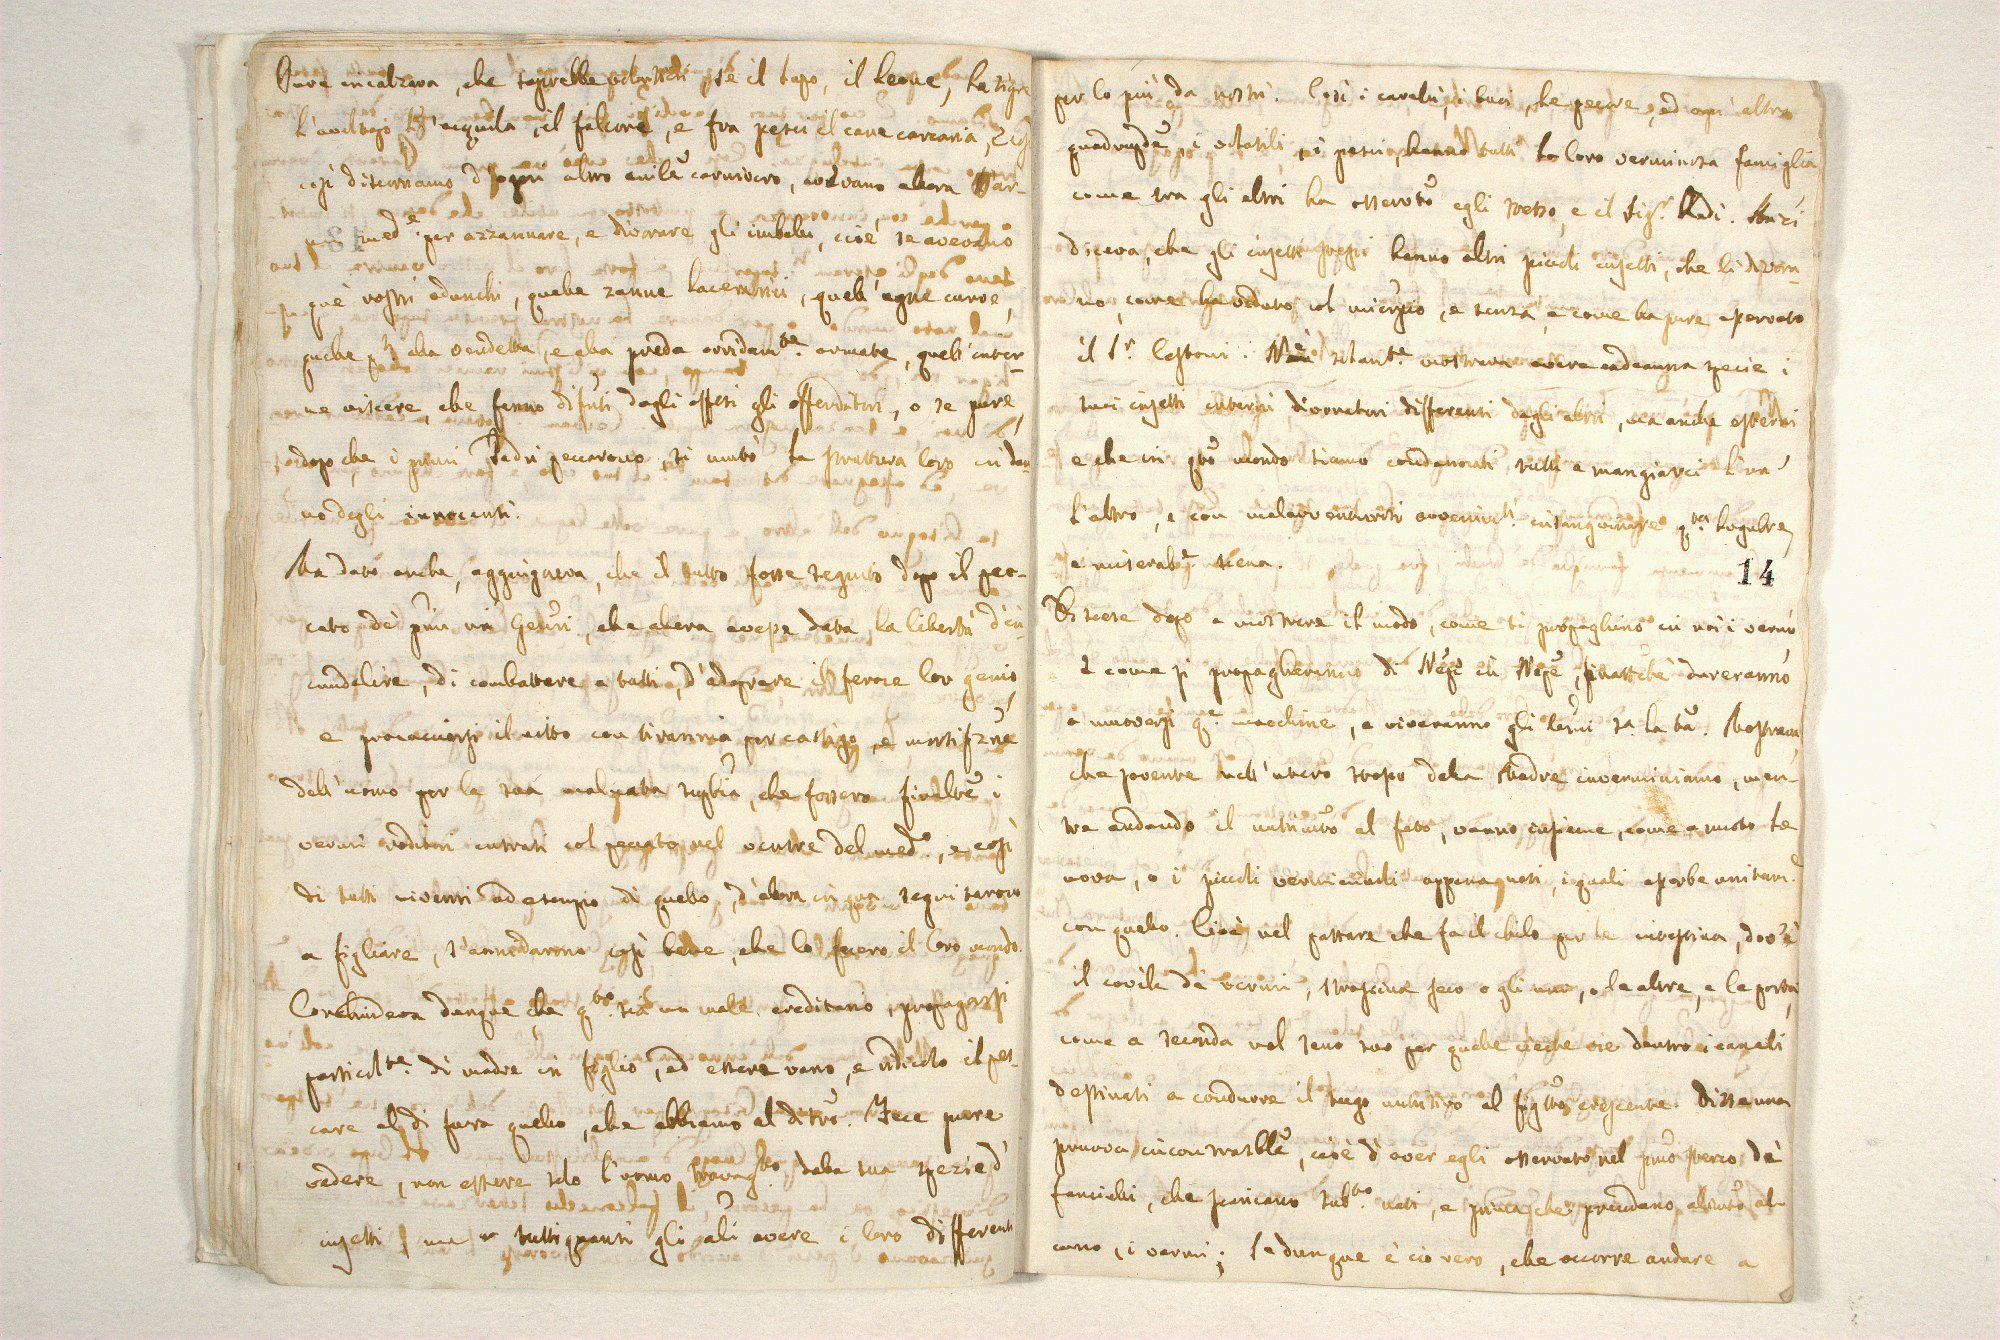 Pure incalzava, che saprebbe volentieri, se il lupo, il Leone, la tigre
l'avoltojo, l'aquila, il falcone, e fra pesci il cane carcaria, e
così discorriamo d'ogni altro aĩle carnivoro, avevano allora
med.e per azzannare, e divorare gl'imbelli, cioè se avevano
que' rostri adunchi, quelle zanne laceratrici, quell'ugne curve,
quelle alla vendetta, e alla preda avidam.te armate, quell'inter-
ne viscere, che fanno difuti dagli offesi gli offenditori, o se pure
dopo che i primi Padri peccarono, si mutò la struttura loro in dan-
no degli innocenti.
Ma dato anche, aggiugneva, che il tutto fosse seguito dopo il pec-
cato de' prĩmi nrĩ Genri, che allora avesse data la libertà d'in-
crudelire, di combattere a tutti, d'adoprare il feroce lor genio
e procacciarsi il vitto con tirannia per castigo, e mortifzne
dell'uomo per la sua malnata superbia, che fossero finalmte i
vermi roditori entrati col peccato nel ventre del med.o, e così
di tutti viventi ad esempio di quello, d'allora in qua seguitarono
a figliare, s'annidarono così bene, che lo fecero il loro mondo.
Conchiudeva dunque che q.to sia un male ereditario, propagarsi
particol.te di madre in figlio, ed essere vano, e ridicolo il pes-
care al di fuora quello, che abbiamo al ditro. Fece pure
vedere, non essere solo l'uomo travag.to dalla sua spezie d'
insetti, ma tutti quanti gli ali avere i loro differenti
per lo più da nostri. Così i cavalli, i buoi, le pecore, ed ogni altro
quadrupede, i volatili, i pesci, hanno tutti la loro verminosa famiglia
come tra gli altri ha osservato egli stesso, e il Sig.r Redi. Anzi
diceva, che gli insetti proprj hanno altri piccoli insetti, che li divora-
no, come ha veduto col micrpio, e senza, e come ha pure osservato
il S.r Cestoni. Nè solam.te mostrava avere cadauna specie i
suoi insetti interni divoratori differenti dagli altri, ma anche esterni
e che in q̃to Mondo siamo condannati tutti a mangiarci l'un
l'altro, e con malavventurosi avvenimti insanguinare q.ta lugubre,
e miserab.e scena.
14
Discese dopo a mostrare il modo, come si propaghino in noi i vermi
e come si propagheranno di Nepe in Nepe, finattchè dureranno
a muoversi q.e macchine, e viveranno gli uomi s.a la tã. Mostrava,
che sovente nell'utero stesso della Madre inverminiamo, men-
tre andando il nutrimto al feto, vanno insieme, come a nuoto le
uova, o i piccoli verminetti appena nati, i quali assorbe unitam.e
con quello. Cioè nel passare che fa il chilo per le intestina, dov'è
il covile de' vermi, strascina seco o gli uni, o le altre, e le porta,
come a seconda nel seno suo per quelle cieche vie dentro i canali
destinati a condurre il sugo nutritivo al figlto crescente. Disse una
pruova incontrastblle, cioè d'aver egli osservato nel prĩmo sterco de'
fanciulli, che scaricano sub.to nati, e prima che prendano alimto al-
cuno, i vermi; se dunque è ciò vero, che occorre andare a